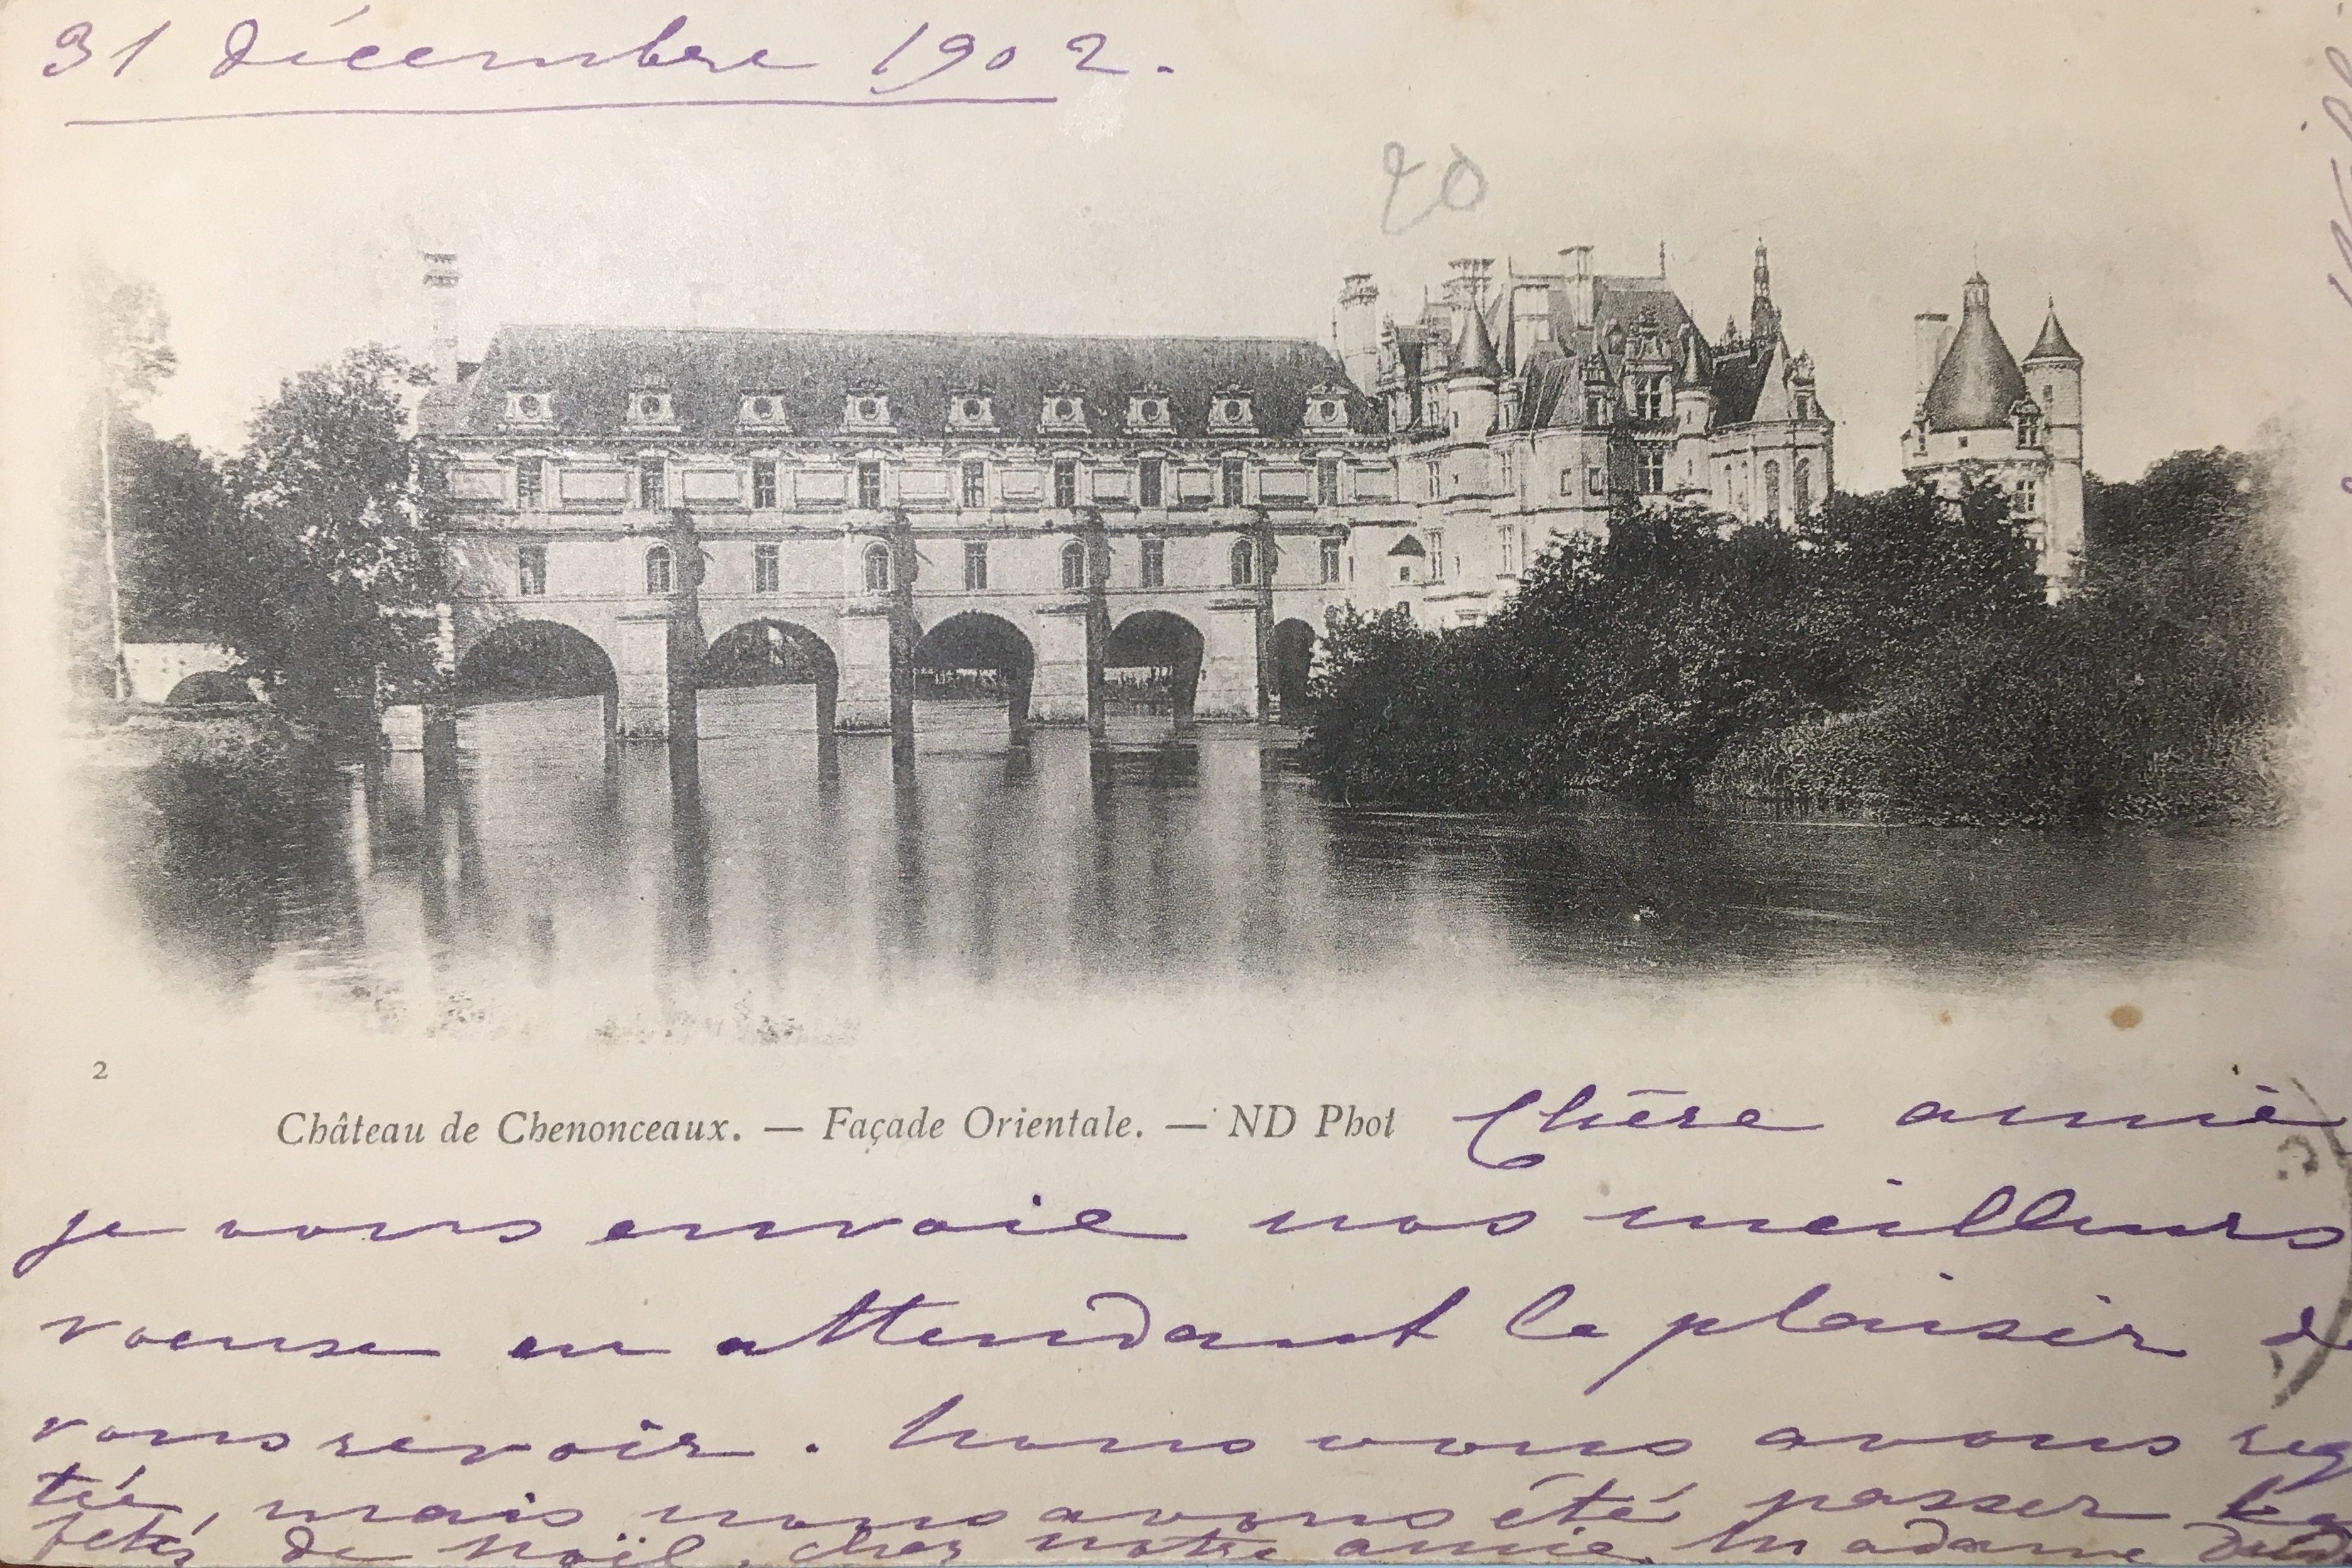 31 décembre 1902.
20
2
Château de Chenonceaux. — Façade Orientale. — ND Phot
Chère amie
je vous envoie nos meilleurs
voeux en attendant le plaisir de
vous revoir. Nous vous avons reg
tée, mais nous avons été passer les
fêtes de Noël, chez notre amie, Madame